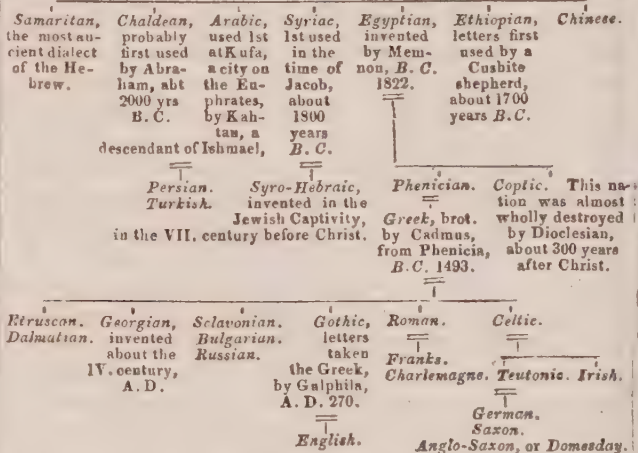 Samaritan, the most an-
cient dialect
of the He-
brew.
Chaldean,
probably
first used
by Abra-
ham, abt
2000 yrs
B. C.
Arabic,
used 1st
at Kufa,
a city on
the Eu-
phrates,
by Kah-
tan, a
descendant of Ishmael,
Syriac,
1st used
in the
time of
Jacob,
about
1800
years
B. C.
Egyptian,
invented
by Mem-
non, B. C.
1822.
Ethiopian,
letters first
used by a
Cushite
shepherd,
about 1700
years B. C.
Chinese.
Persian.
Turkish.
Syro-Hebraic,
invented in the
Jewish Captivity,
in the VII. century before Christ.
Phenician.
Greek, brot.
by Cadmus,
from Phenicia,
B. C. 1493.
Coptic. This na-
tion was almost
wholly destroyed
by Dioclesian,
about 300 years
after Christ.
Etruscan.
Dalmatian.
Georgian,
invented
about the
IV. century,
A. D.
Sclavonian.
Bulgarian.
Russian.
Gothic,
letters
taken
the Greek,
by Galphila,
A. D. 270.
English.
Roman.
Franks.
Charlemagne.
Celtic.
Teutonic. Irish.
German.
Saxon.
Anglo-Saxon, or Domesday.